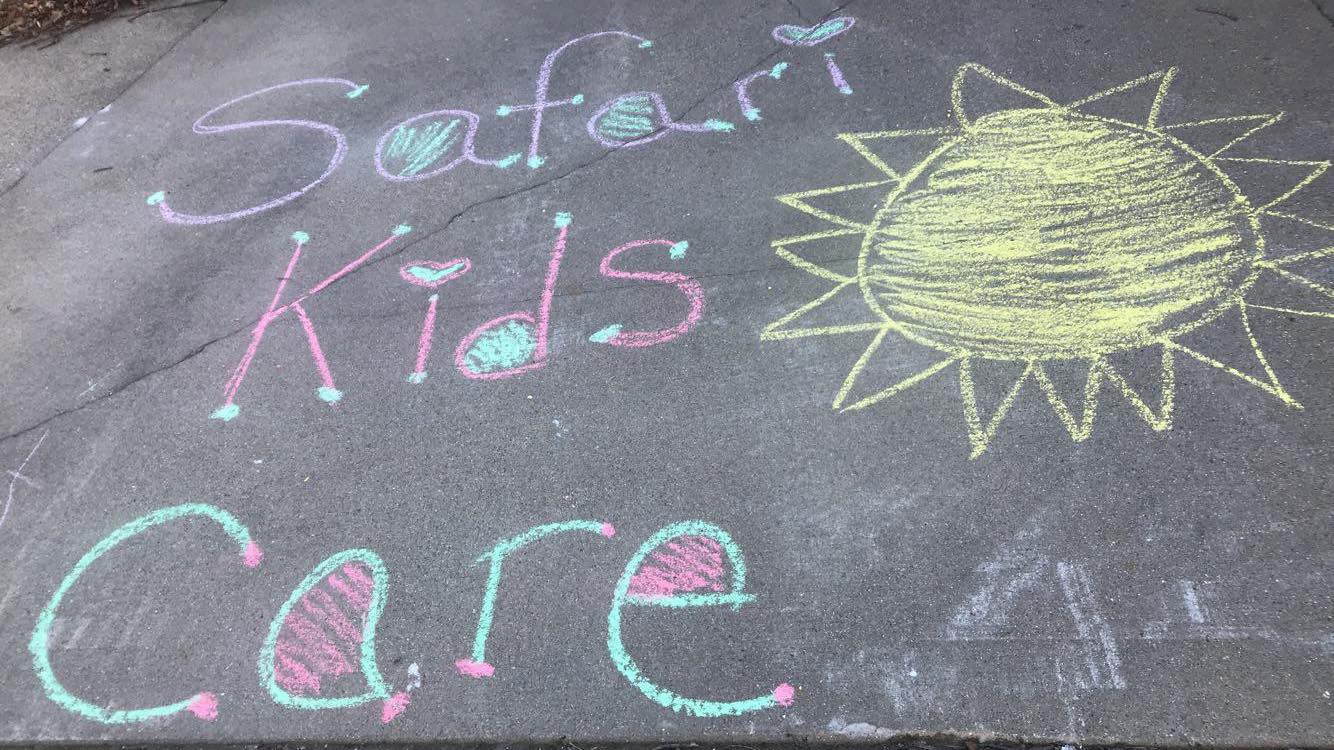 Safari
Kids
Care